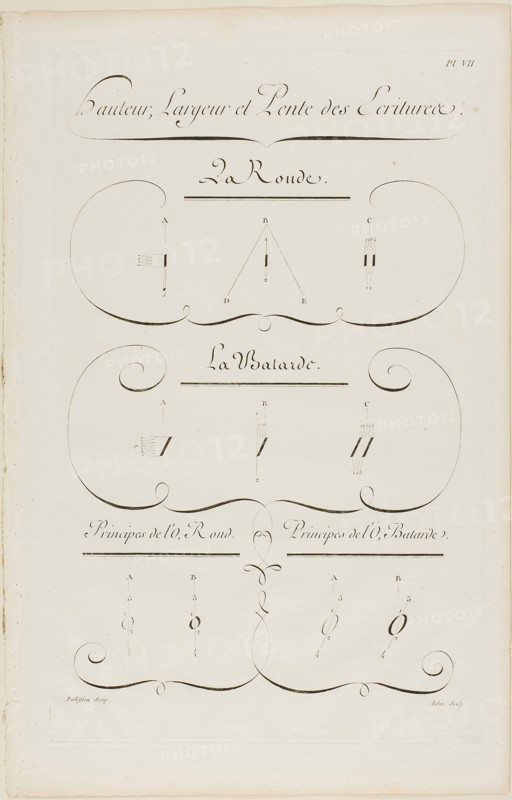 Pl. VII.
Hauteur, Largeur et Pente des Ecritures.
La Ronde.
A B C
D E
La Batarde.
A B C
Principes de l'O, Rond. Principes de l'O, Batarde.
A B A B
3 3 3 3
4 4 4 4
Aubin Sculp.